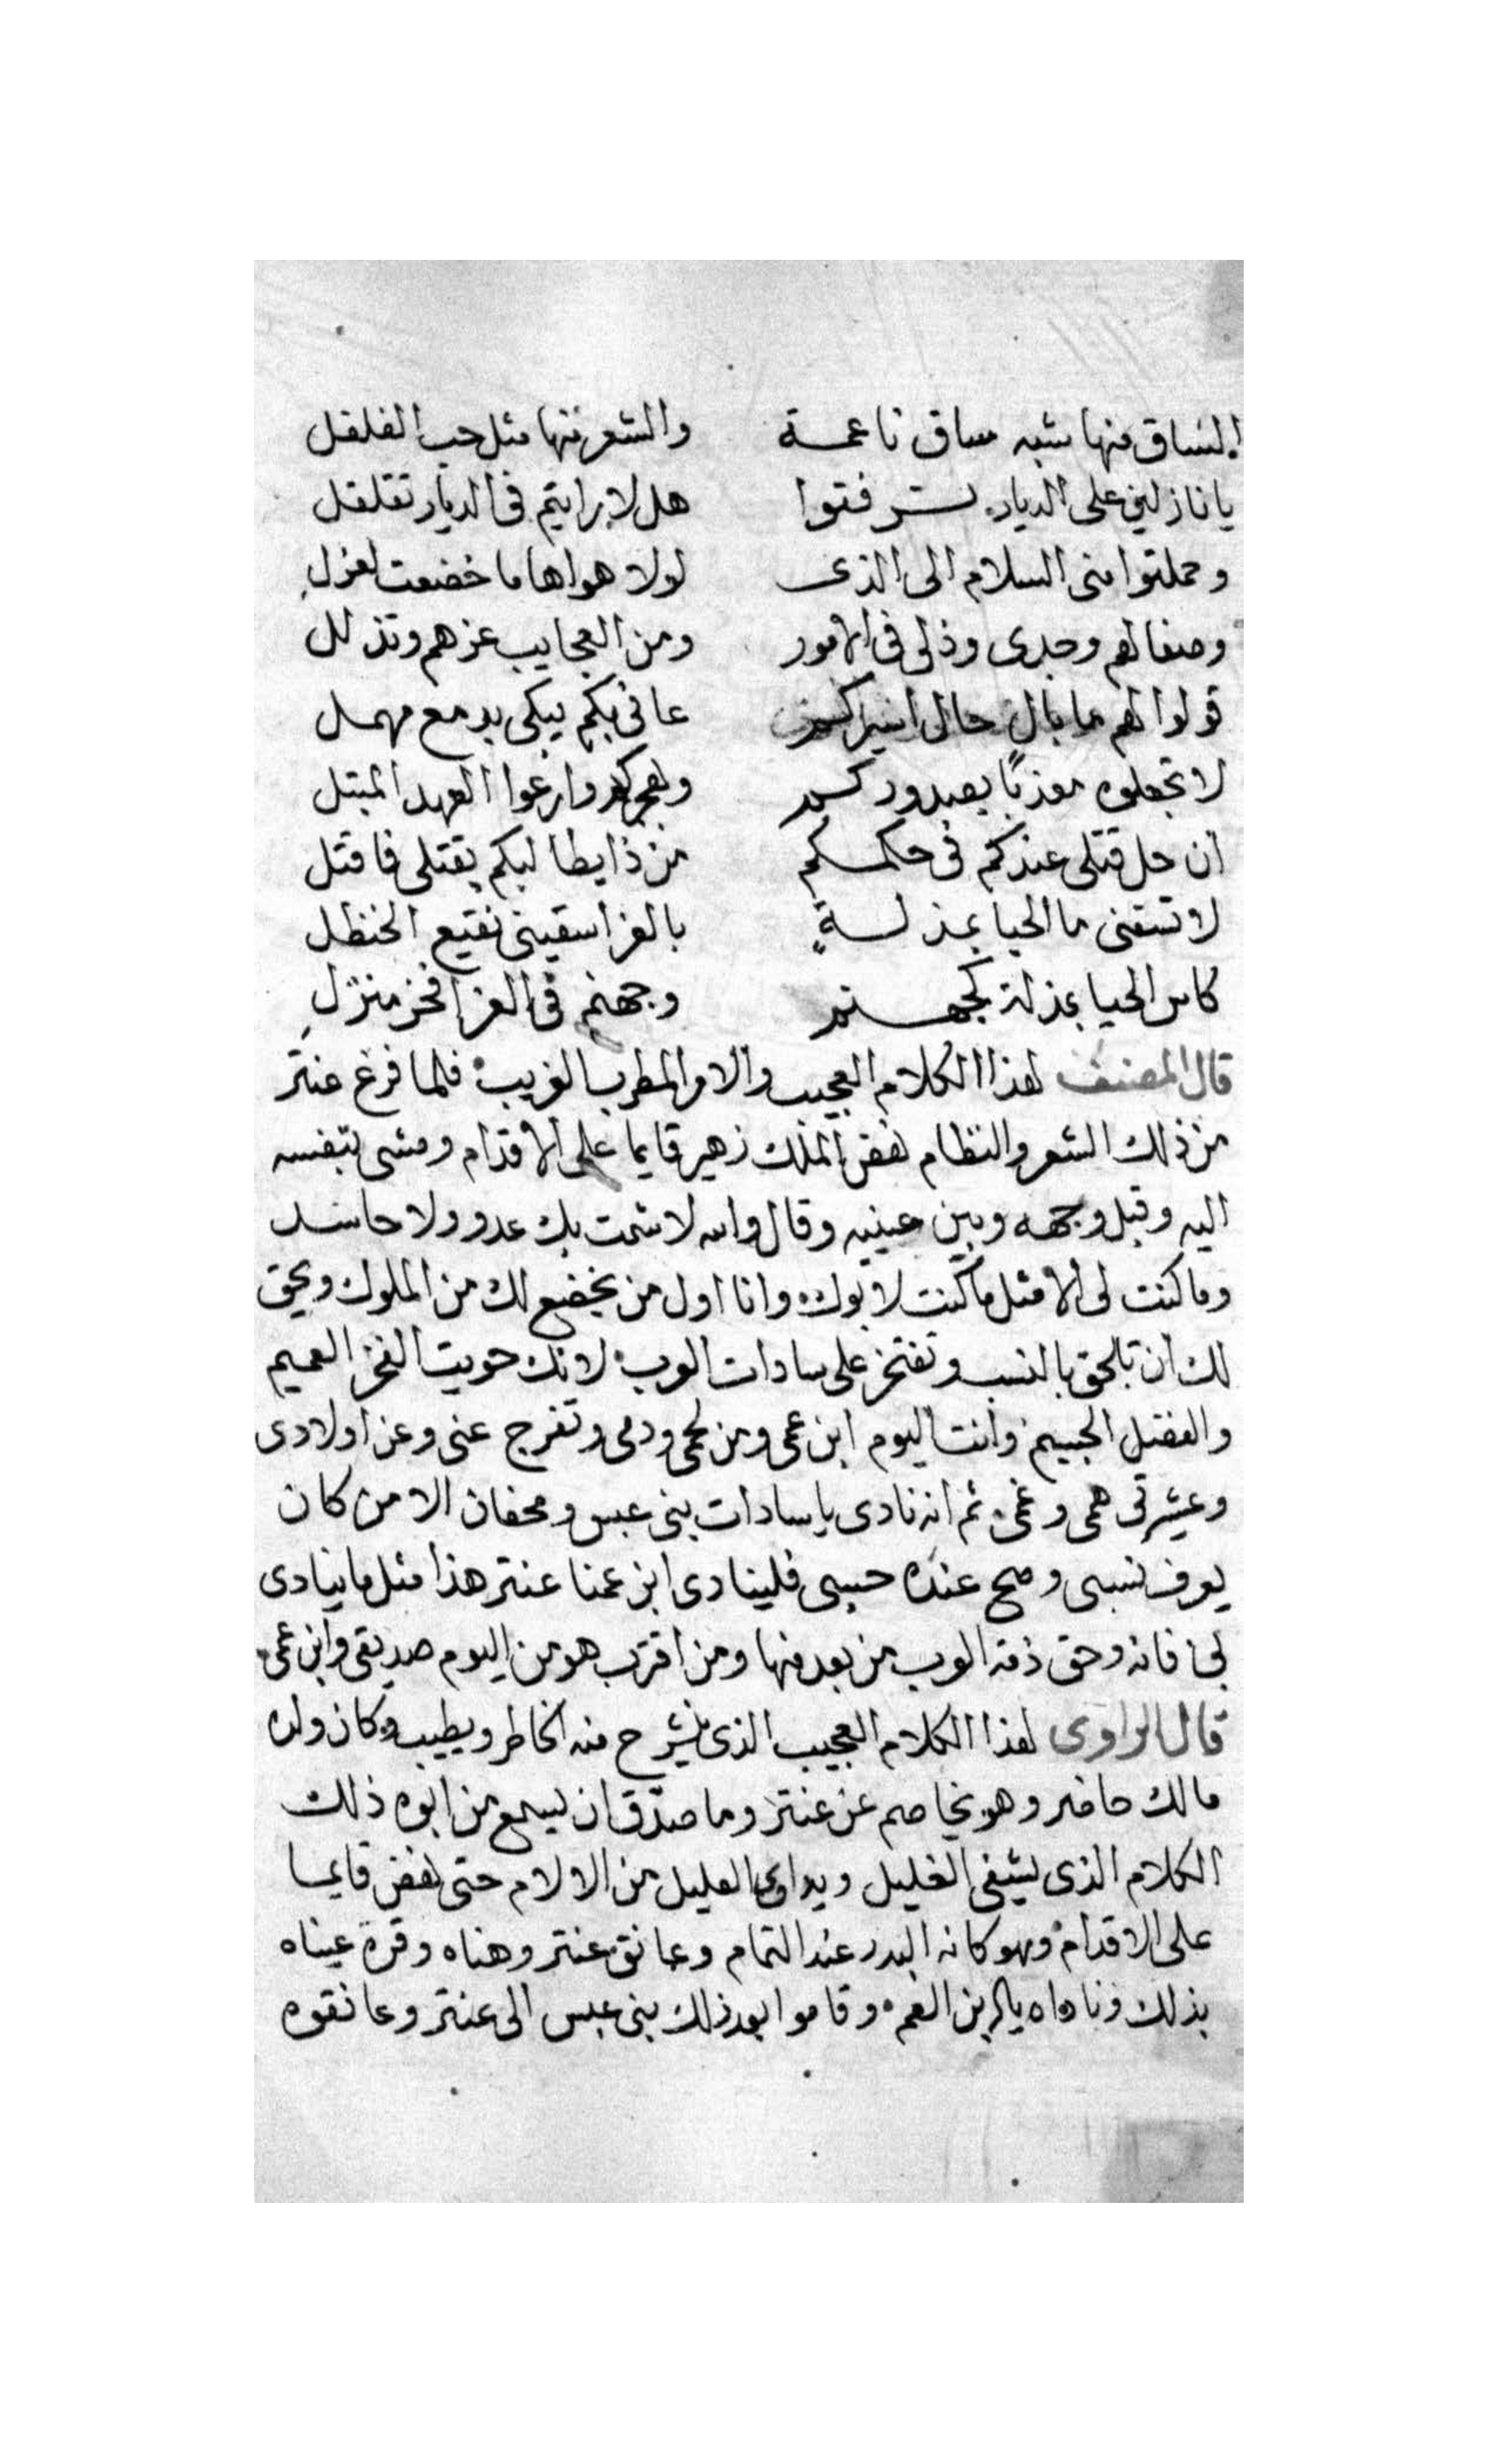 الساق منها شبه ساق ناعمة والشعر منها مثل حب الفلفل
يا نازلين على الديار تشرفتوا هل لا برايتم فى الديار تقلقل
وحملتوا منى السلام الى الذى لولا هواها ما خضعت لعزل
وصفا لهم وجدى وذلى فى الامور ومن العجايب عزهم وتذلل
قولوا لهم ما بال حال اسيركم عانى بكم يبكى بدمع مهمل
لا تجعلوه معذبًا بصدودكم وهجركم وارعوا العهد المبتل
ان حل قتلى عندكم فى حكمكم من ذا يطالبكم بقتلى فاقتل
لا تسقنى ما الحيا بمذلةٍ بالعز اسقينى نقيع الحنظل
كاس الحيا بمذلة كجهنم وجهنم فى العز افخر منزلِ
قال المصنف لهذا الكلام العجيب والامر المطرب الغريب فلما فرغ عنتر
من ذلك الشعر والنظام نهض الملك زهير قايما على الاقدام ومشى بنفسه
اليه وقبل وجهه وبين عينيه وقال والله لا شمت بك عدو ولا حاسد
وما كنت لى الا مثل ما كنت لابوك وانا اول من يخضع لك من الملوك ويحق
لك ان تلحق بالنسب وتفتخر على سادات العرب لانك حويت الفخر العميم
والفضل الجسيم وانت اليوم ابن عمى ومن لحمى ودمى وتفرج عنى وعن اولادى
وعشيرتى همى وغمى ثم انه نادى يا سادات بنى عبس ومحفان الا من كان
يعرف نسبى وصح عنده حسبى فلينادى ابن عمنا عنتر هذا مثل ما ينادى
لى فانه وحق ذمة العرب من بعد منها ومن اقترب هو من اليوم صديقى وابن عمى
قال الراوى لهذا الكلام العجيب الذى ينشرح منه الخاطر ويطيب وكان ولده
مالك حاضر وهو يخاصم عن عنتر وما صدق ان يسمع من ابوه ذلك
الكلام الذى يشفى الغليل ويداوى العليل من الالام حتى نهض قايما
على الاقدام وهو كانه البدر عند التمام وعانق عنتر وهناه وقرة عيناه
بذلك وناداه يا ابن العم وقاموا بعد ذلك بنى عبس الى عنتر وعانقوه